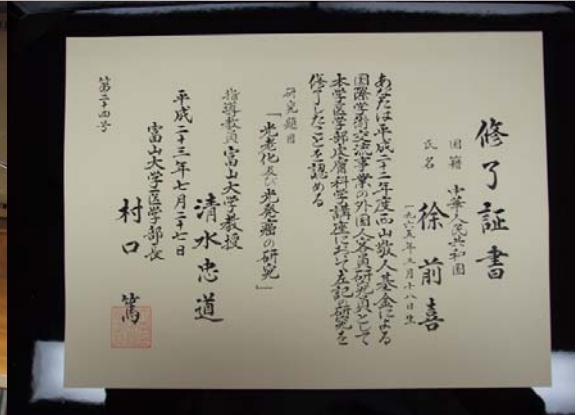 修了証書
国籍 中華人民共和国
氏名 徐前喜
一九六五年五月十八日生
あなたは平成二十二年度西山敬人基金による
国際学術交流事業の外国人客員研究員として
本学医学部皮膚科学講座において左記の研究を
修了したことを認める
研究題目
「光老化及び光発癌の研究」
指導教員 富山大学教授
清水忠道
平成二十三年七月二十七日
富山大学医学部長
村口 篤
第二十四号